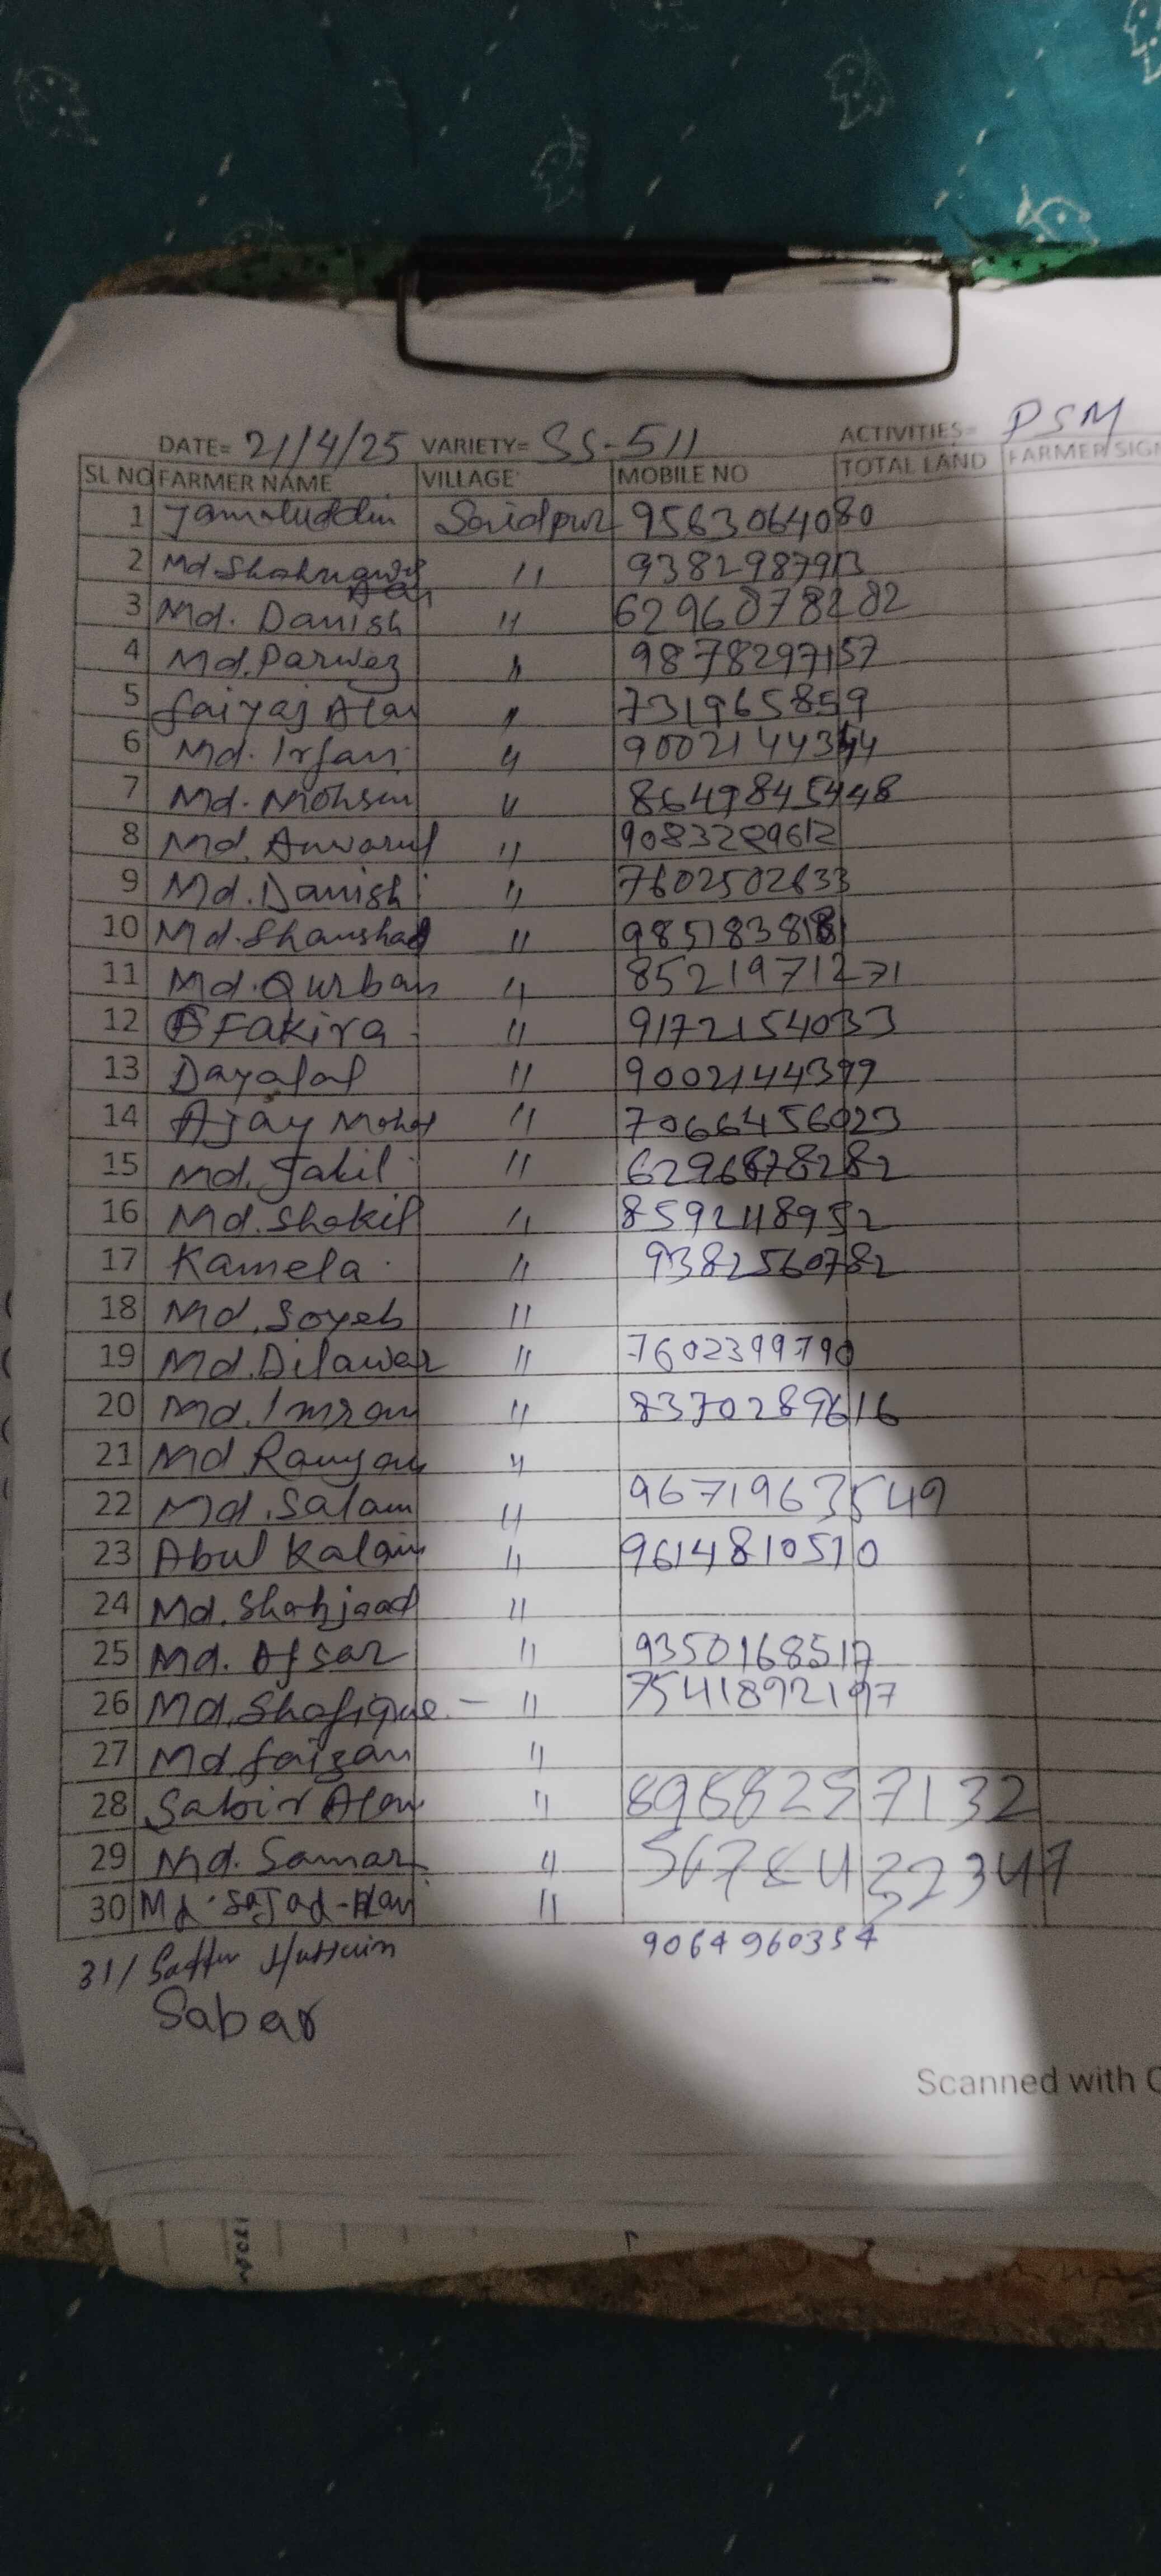 DATE= 21/4/25 VARIETY= SS-511 ACTIVITIES= PSM
SL NO FARMER NAME VILLAGE MOBILE NO TOTAL LAND FARMER SIGN
1 Jamaluddin Saidpur 9563064080
2 Md Shahnawaj Alam 〃 9382987913
3 Md. Danish 〃 6296878282
4 Md. Parwez 〃 9878297157
5 faiyaj Alam 〃 731965859
6 Md. Irfan 〃 9002144344
7 Md. Mohsin 〃 8649845448
8 Md. Anwarul 〃 9083289612
9 Md. Danish 〃 7602502633
10 Md. Shamshad 〃 985183818
11 Md. Qurban 〃 8521971271
12 Fakira 〃 9172154033
13 Dayalal 〃 9002144399
14 Ajay Mohal 〃 7066456023
15 Md. Jalil 〃 6296878282
16 Md. Shakil 〃 8592118952
17 Kamela 〃 9382560782
18 Md. Soyeb 〃
19 Md. Dilawar 〃 7602399790
20 Md. Imran 〃 8370289616
21 Md 〃
22 Md. Salam 〃 9671963549
23 Abul Kalam 〃 9614810510
24 Md. Shahjaad 〃
25 Md. Afsar 〃 9350168517
26 Md. Shafique - 〃 7541892197
27 Md faizan 〃
28 Sabir Alam 〃 89582571 32
29 Md. Samar 〃
30 Md. Sajad-Alam 〃
31/ Hussain 9064960354
Sabar
Scanned with C